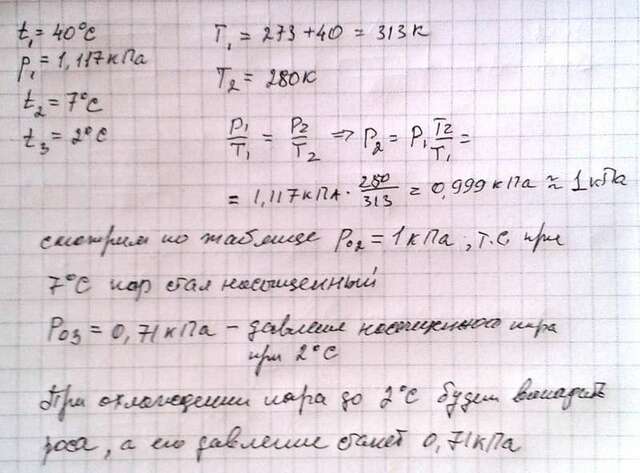 t₁ = 40°C
T₁ = 273 + 40 = 313 К
p₁ = 1,117 кПа
T₂ = 280К
t₂ = 7°C
t₃ = 2°C
P₁/T₁ = P₂/T₂ => P₂ = P₁ T₂/T₁ =
= 1,117 кПа · 280/313 = 0,999 кПа ≈ 1 кПа
смотрим по таблице P₀₂ = 1 кПа, т.е. при
7°C пар стал насыщенный
P₀₃ = 0,71 кПа – давление насыщенного пара
при 2°C
При охлаждении пара до 2°C будет выпадать
роса, а его давление станет 0,71 кПа